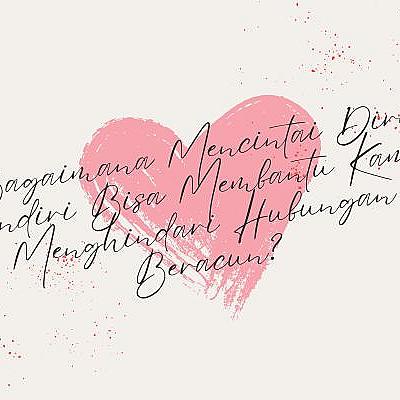 Bagaimana Mencintai Dir
ndiri Bisa Membantu Kam
Menghindari Hubungan
Beracun?